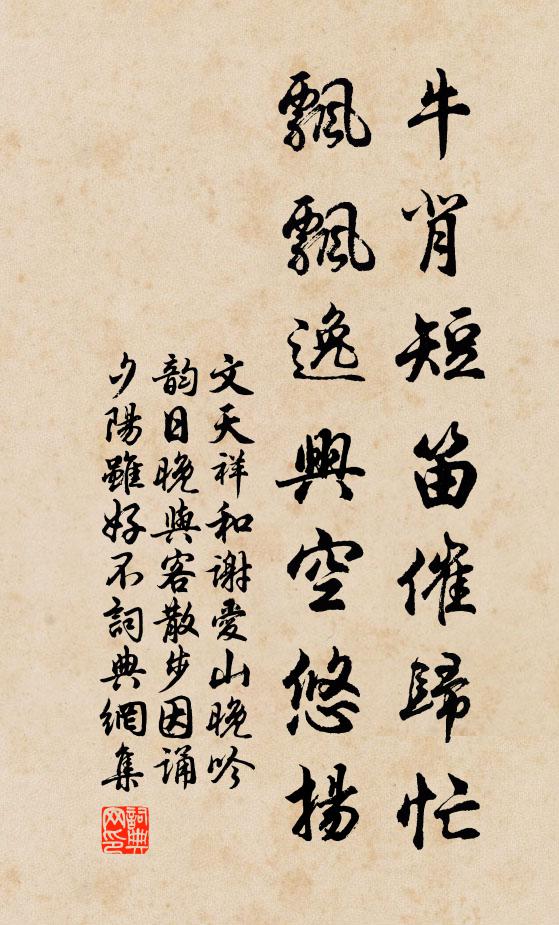 牛背短笛催歸忙
飄飄逸興空悠揚
文天祥和謝愛山晚吟
韵日晚與客散步因诵
夕陽雖好不詞典網集
詞典
网印